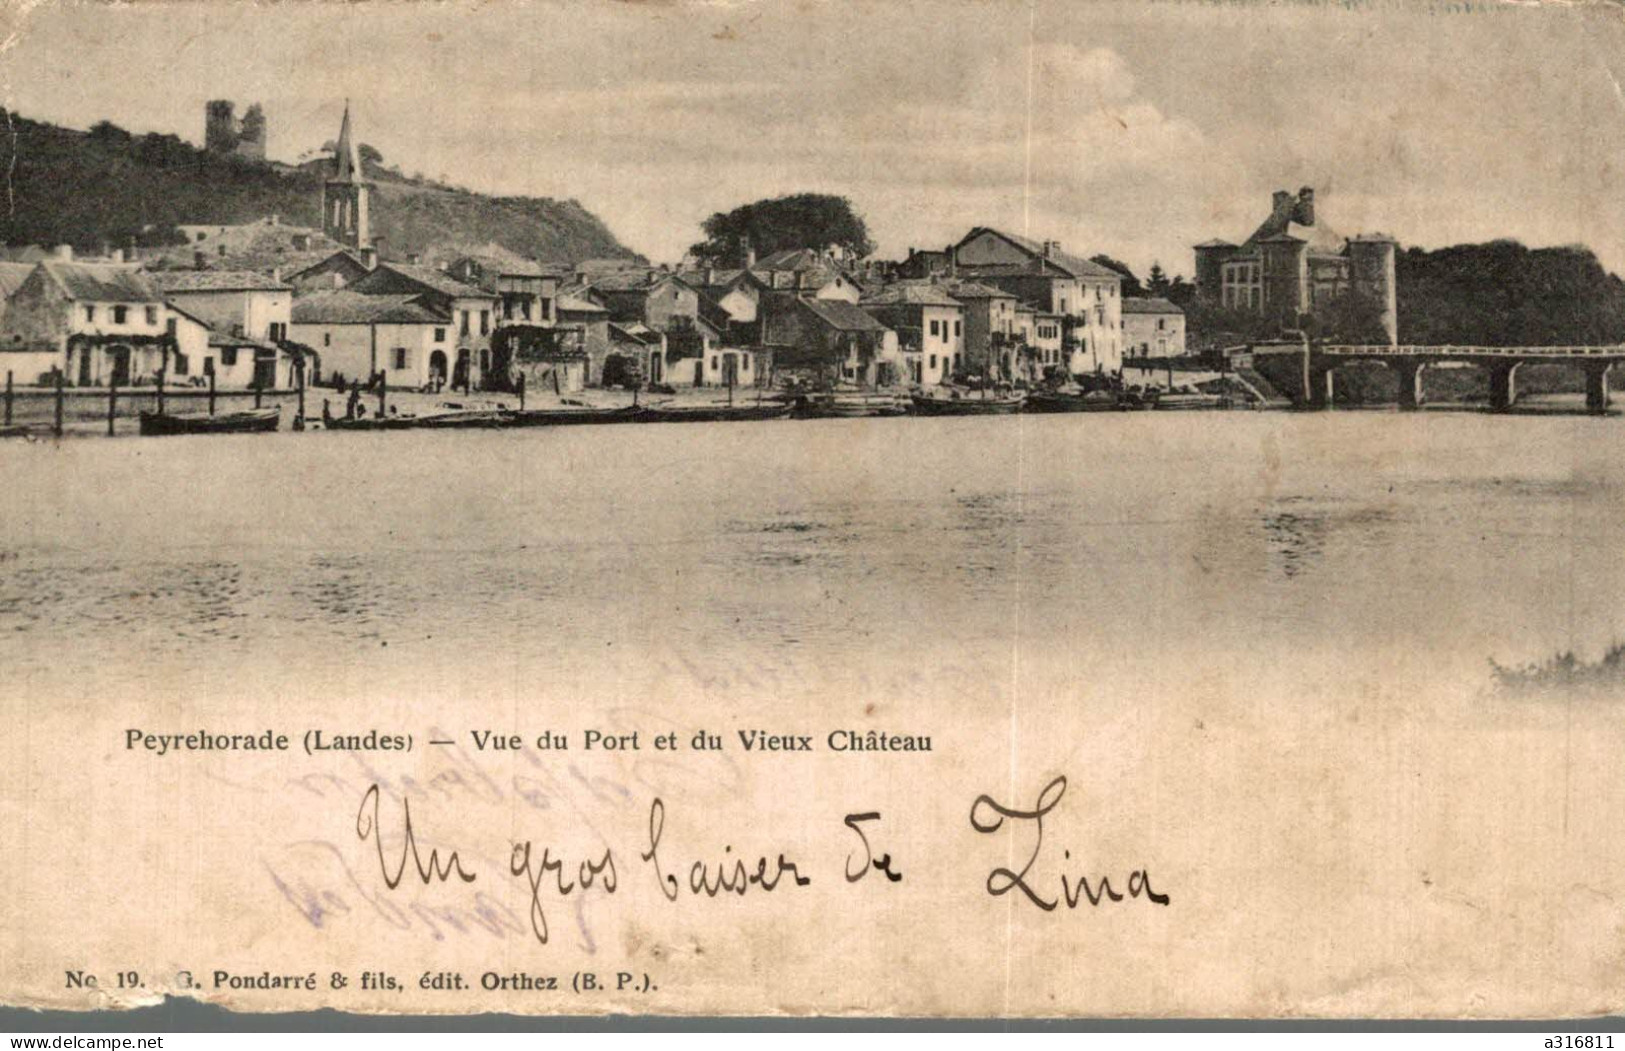 Peyrehorade (Landes) — Vue du Port et du Vieux Château
Un gros baiser de Lina
No 19. G. Pondarré & fils, édit. Orthez (B. P.).
www.delcampe.net
a316811